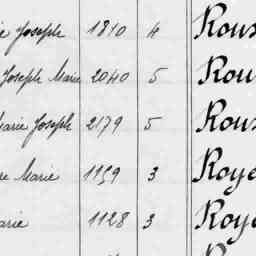 Joseph 1810 4 Rous
Joseph Marie 2040 5 Rou
Marie Joseph 2179 5 Rous
Marie 1159 3 Roye
arie 1128 3 Roye